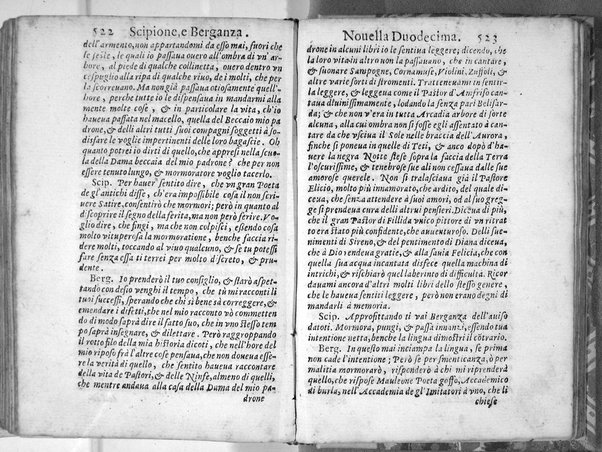 522 Scipione, e Berganza.
dell'armento, non appartandomi da esso mai, fuori che
le feste, le quali io passaua ouero all'ombra di vn ar-
bore, al piede di qualche collinetta, ouero dentro vn
cespuglio alla ripa di qualche riuo, de i molti, che per
là scorreuano. Ma non già passaua otiosamente quell'
hore, perche tutte io le dispensaua in mandarmi alla
mente molte cose, & in particolare la vita, ch'io
haueua passata nel macello, quella del Beccaio mio pa
drone, & delli altri tutti suoi compagni soggetti à so-
disfare le voglie impertinenti delle loro bagascie. Oh
quanto potrei io dirti di quello, che appresi nella scuo-
la della Dama beccaia del mio padrone? che per non
essere tenuto lungo, & mormoratore voglio tacerlo.
Scip. Per hauer' sentito dire, che vn gran Poeta
de gl'antichi disse, ch'era impossibile cosa il non scri-
uere Satire, consentirò che mormori; però in quanto al
d'scoprire il segno della ferita, ma non però ferire. Vo-
glio dire, che fingi, ma che non colpisci, essendo cosa
molto vituperosa la mormoratione, benche faccia ri-
dere molti, toccando al viuo qualcuno, & se tu potessi
fare senza essa ti terrei per molto discreto, & pru-
dente.
Berg. Io prenderò il tuo consiglio, & starò aspet-
tando con desio venghi il tempo, che tù mi racconti li
tuoi successi, sperando che chi sì bene sà correggere, &
emendare i difetti, che nel mio racconto vò commetten
do di modo saprà dire il fatto suo, che in vno stesso tem
po saprà insegnare, & dilettare. Però raggroppando
il rotto filo della mia historia dicoti, che nell'hore del
mio riposo frà l'altre cose pensaua, che non doueua esse-
re la verità di quello, che sentito haueua raccontare
della vita de Pastori, & delle Ninfe, almeno di quelli,
che mentre andaua alla casa della Dama del mio pa-
drone
Nouella Duodecima. 523
drone in alcuni libri io le sentiua leggere; dicendo, che
la loro vita in altro non la passauano, che in cantare,
& suonare Sampogne, Cornamuse, Violini, Zuffoli, &
altre varie sorti di stromenti. Tratteneuami in sentir-
la leggere, & leggeua come il Pastor d'Amfriso can-
taua diuinissimamente, lodando la senza pari Belisar-
da; & che non v'era in tutta Arcadia arbore di sorte
alcuna, alla cui ombra non si fosse egli assentato à can-
tare da che vsciua il Sole nelle braccia dell'Aurora,
finche si poneua in quelle di Teti, & anco dopò d'ha-
uere la negra Notte stese sopra la faccia della Terra
l'oscurissime, & tenebrose sue ali non cessaua dalle sue
amorose querele. Non si tralasciaua già il Pastore
Elicio, molto più innamorato, che ardito, del quale di-
ceua, che senza attendere à suoi amori, od al suo greg-
ge si prendeua cura delli altrui pensieri. Diceua di più,
che il gran Pastor di Fillida vnico pittore di vn ritrat
to era stato più confidente, che auuenturoso. Delli sue-
nimenti di Sireno, & del pentimento di Diana diceua,
che à Dio rendeua gratie, & alla sauia Felicia, che con
quella sua acqua incantata disfece quella machina di
intrichi, & rischiarò quel laberinto di difficultà. Ricor
dauami ancora d'altri molti libri dello stesso genere,
che le haueua sentiti leggere, però non erano degni di
mandarli à memoria.
Scip. Approfittando ti vai Berganza dell'auiso
datoti. Mormora, pungi, & passa innanzi, essendo tua
intentione netta, benche la lingua dimostri il cōtrario.
Berg. In questo mai inciampa la lingua, se prima
non cade l'intentione; Però se per smenticanza, ò per
malitia mormorarò, risponderò à chi mi riprenderà
quello, che rispose Mauleone Poeta goffo, Accademico
di burla, nell'Accademia de gl'Imitatori à vno, che li
chiese